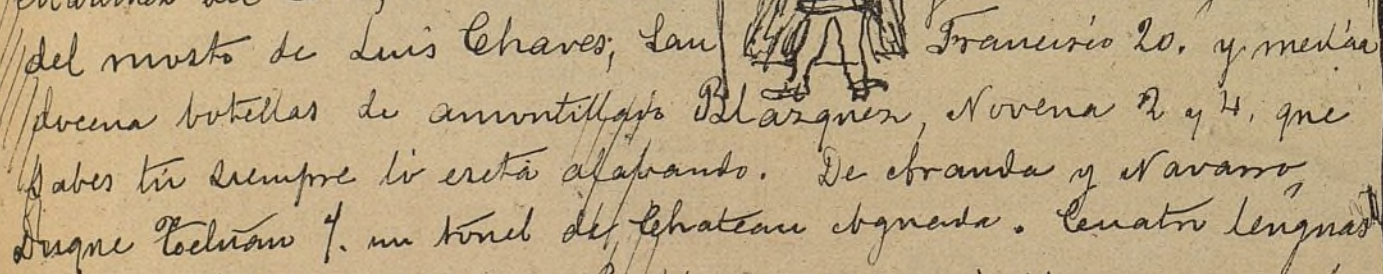 del mosto de Luis Chaves, San Francisco 20. y media
docena botellas de amontillado Blázquez, Novena 2 y 4. que
sabes tú siempre lo está alabando. De Aranda y Navarro,
Duque Tetuán 7. un tonel de Chateau Agueda. Cuatro lenguas